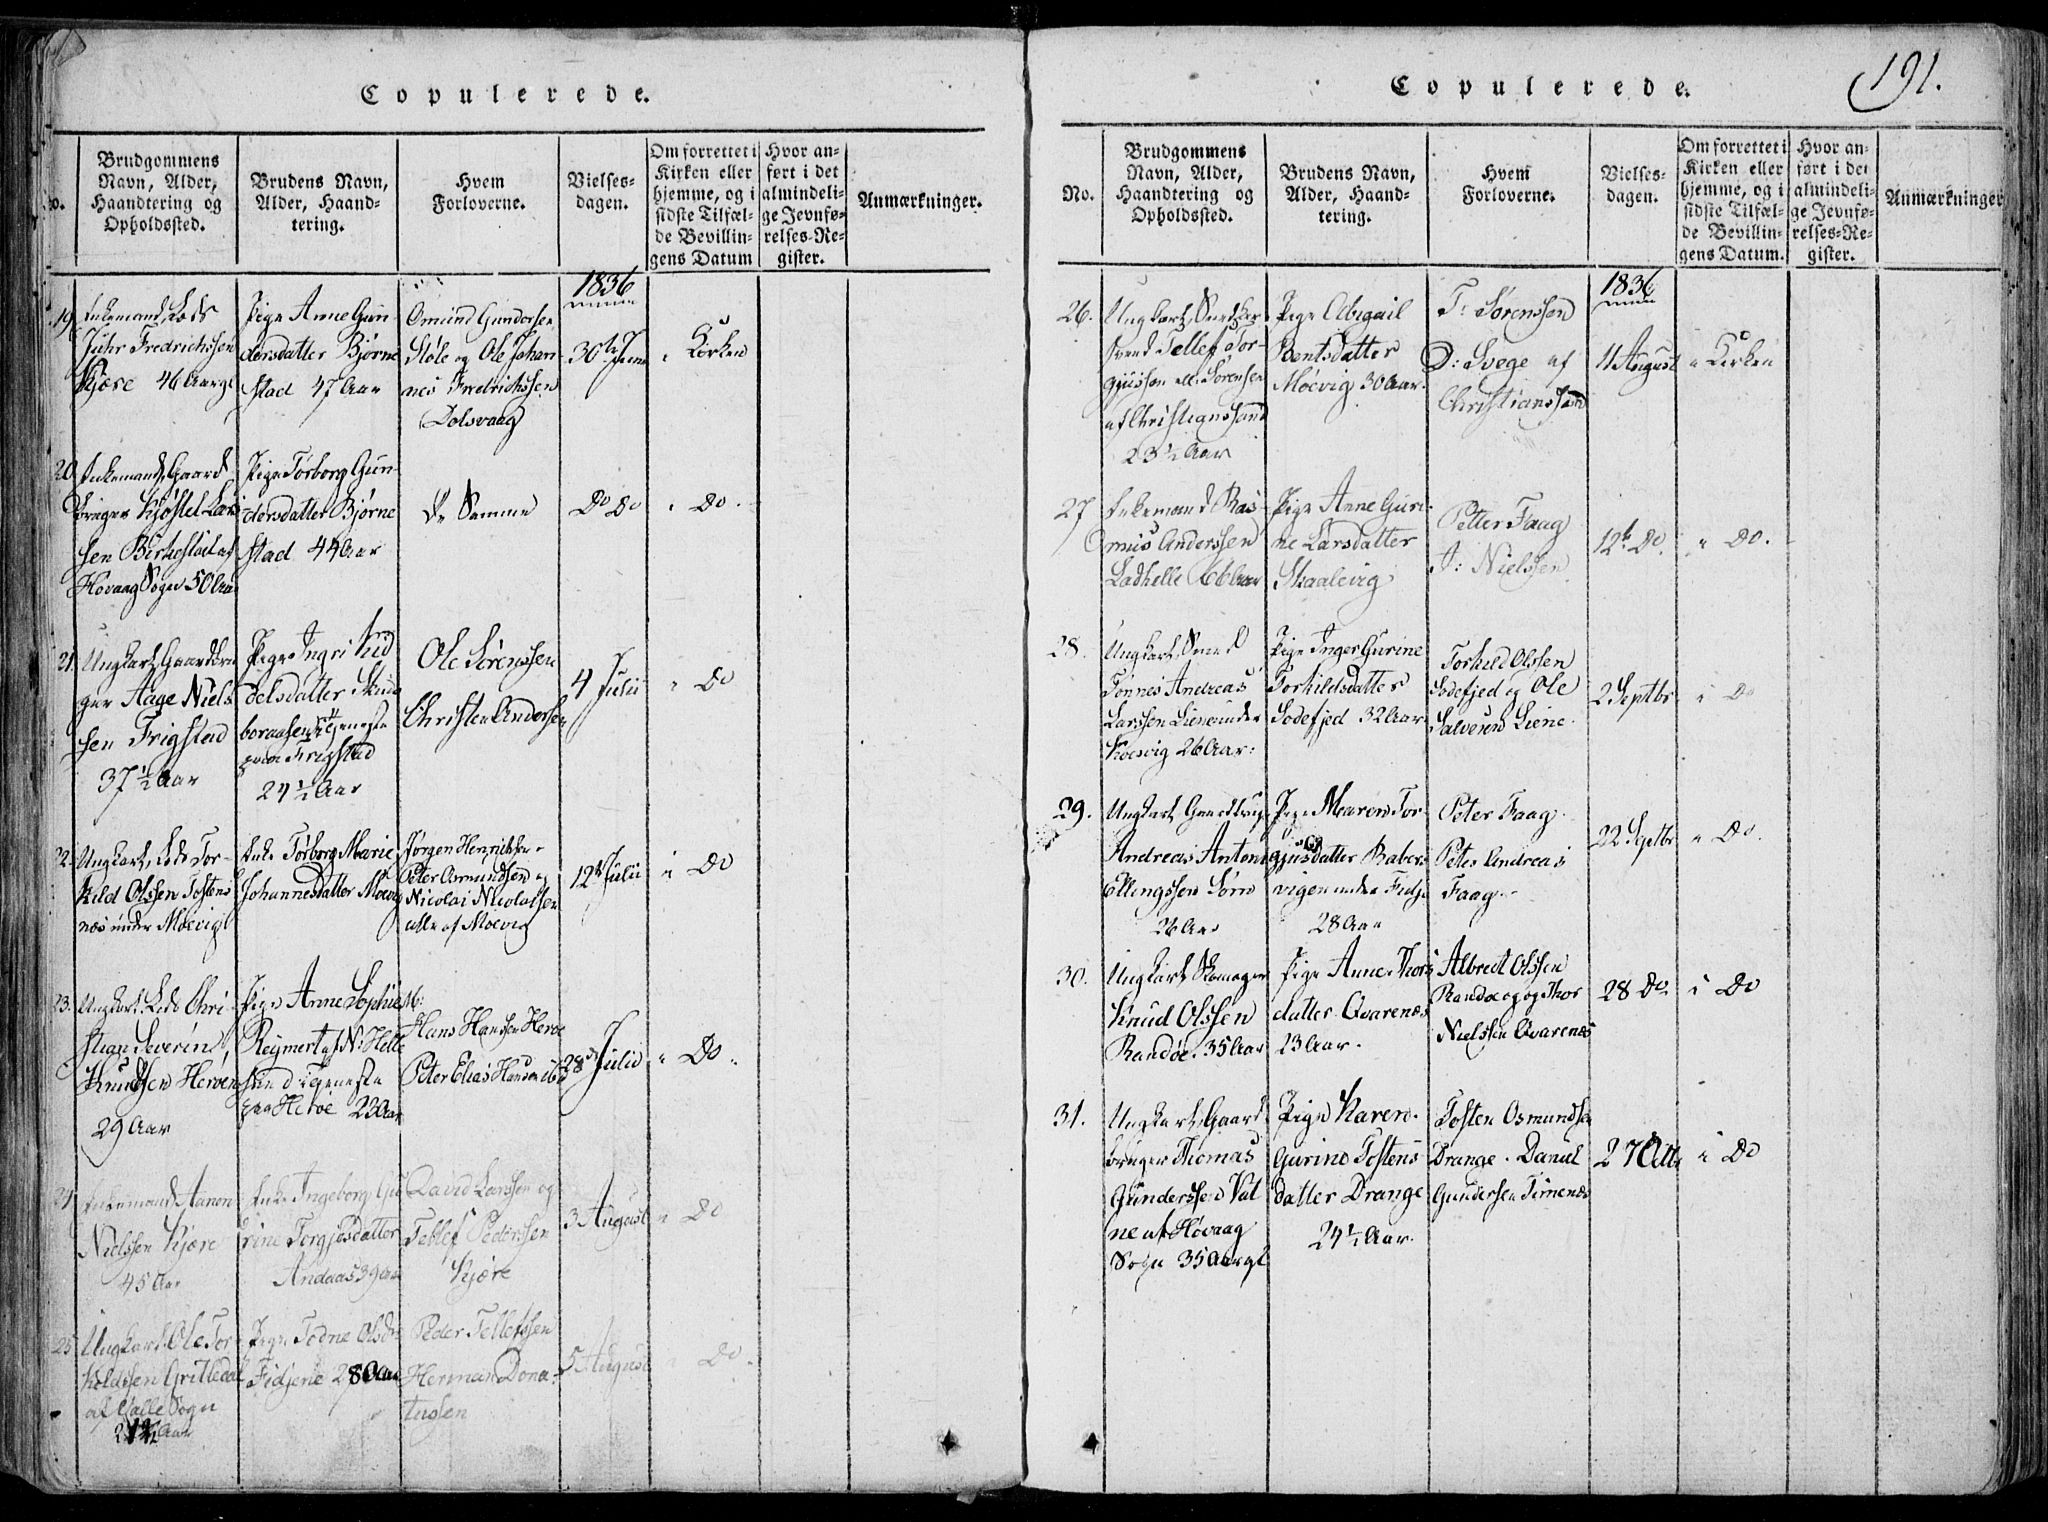 Copulerede.
No.
Brudgommens
Navn, Alder,
Haandtering og
Opholdssted.
Brudens Navn,
Alder, Haand-
tering.
Hvem
Forloverne.
Vielses-
dagen.
Om forrettet i
Kirken eller
hjemme, og i
sidste Tilfæl-
de Bevillin-
gens Datum
Hvor an-
ført i det
almindeli-
ge Jevnfø-
relses-Re-
gister.
Anmærkninger.
1836
19
Enkemand, Lods
Fredrichssen
Kjære 46 Aar gl
Pige Anne Gun-
dersdatter Bjørne
stad 47 Aar
Omund Gundersen
Støle og Ole Johan
nes Fredrichssen
Dolsvaag
30te Juni
i Kirken
20
Enkemand, Gaard
bruger Kjøstel Lar
sen Birkestøl af
Høvaag Sogn 50 Aar
Pige Torborg Gun-
dersdatter Bjørne
stad 44 Aar
De Samme
Do Do
i Do.
21.
Ungkarl, Gaardbru
ger Aage Niels
sen Frigstad
37 1/2 Aar
Pige Ingri Kid
delsdatter
boraasen i Tjeneste
paa Frigstad
24 1/2 Aar
Ole Sørenssen
Christen Andersen
4 Julii
i Do
22.
Ungkarl, Lods Tor-
kild Olssen Tostens
næs under Moevig
Enke Torborg Marie
Johannesdatter Moevig
Jørgen Henrichsen
Peter Osmundsen og
Nicolai Nicolaisen
alle af Moevig
12te Julii
i Do
23.
Ungkarl Lods Chri
stian Severin
Knudsen Herøen
29 Aar
Pige Anne Sophie M:
Reymert af N: Helle
sund i Tjeneste
paa Herøe 23 Aar
Hans Hanssen Herøe
Peter Elias Hansen ibd
28de Julii
i Do.
24
Enkemand Aanon
Nielssen Kjære
45 Aar
Enke Ingeborg Gu
rine Torgjusdatter
Andaas 39 Aar
David Larssen og
Tellef Pederssen
Kjære
3 August
i Do
25
Ungkarl Ole Tor
kildssen Gritledal
af Valle Sogn
Pige Todne Olsdtr
Fidjene 28 Aar
Peder Tellefssen
Herman Dona-
tussen
5 August
i Do.
Copulerede.
191.
No.
Brudgommens
Navn, Alder,
Haandtering og
Opholdssted.
Brudens Navn,
Alder, Haand-
tering.
Hvem
Forloverne.
Vielses-
dagen.
Om forrettet i
Kirken eller
hjemme, og i
sidste Tilfæl-
de Bevillin-
gens Datum.
Hvor an-
ført i det
almindeli-
ge Jevnfø-
relses-Re-
gister.
Anmærkninger
1836
26.
Ungkarl, Snedker
Svend Tellef Tor-
gjussen ell. Sørensen
af Christianssand
23 1/2 Aar
Pige Abigail
Bentsdatter
Moevig 30 Aar.
T: Sørenssen
D: Svege af
Christianssand
11 August
i Kirken
27
Enkemand Ras-
mus Anderssen
Ladhelle 66 Aar
Pige Anne Guri-
ne Larsdatter
Skaalevig
Petter Faag
J: Nielssen
12te Do.
i Do.
28.
Ungkarl, Smed
Tønnes Andreas
Larssen Liene under
Koesvig 26 Aar:
Pige Inger Gurine
Torkildsdatter
Sodefjed 32 Aar
Torkild Olssen
Sodefjed og Ole
Salvesen Liene.
2 Septbr
i Do
29.
Ungkarl, Gaardbrug.
Andreas Antoni
Ellingssen Sørn
26 Aar
Pige Maren Tor-
gjusdatter Baber
vigen under Fidje
28 Aar
Peter Faag
Peter Andreas
Faag
22 Septbr
i Do.
30.
Ungkarl, Skomager
Knud Olssen
Randøe. 35 Aar
Pige Anne Thors
datter Qvarenæs
23 Aar.
Albredt Olssen
Randøe og og Thor
Nielssen Qvarenæs
28 Do
i Do
31.
Ungkarl, Gaard
bruger Thomas
Gunderssen Val
ne af Høvaag
Sogn 35 Aar gl
Pige Karen
Gurine Tostens
datter Drange
24 1/2 Aar.
Tosten Osmundsen
Drange. Daniel
Gundersen Timenæs
27 Octbr
i Do